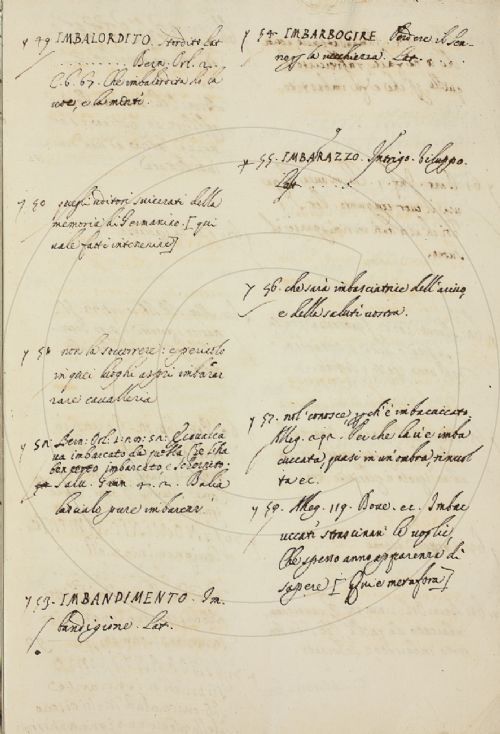 49. IMBALORDITO. stordito Lat.
. . . . . . . . . Bern. Orl. 2.
C. 6. 67. Che imbalordita ho la
voce, e la mente.
50 quegli uditori sviscerati della
memoria di Germanico. [qui
vale fatti intenerire]
non la soccorrere: e pericolo
in quei luoghi aspri imbarar
rare cavalleria
52. Bern: Orl: 1:
va imbarcato da quella
ben certo imbarcato, e schernito;
Salv. Gran. 4. 2. Balia
la quale pure imbarcar
53. IMBANDIMENTO. Im.
bandigione. Lat.
54. IMBARBOGIRE. Perdere il sen-
no per la vecchiezza. Lat. . .
55. IMBARAZZO. Intrigo. Viluppo.
Lat. . . .
56. che sarà imbasciatrice dell'arivo,
e della salute vostra.
57. nol conosce perch'è imbacuccato,
Alleg. Perche la v'è imba
cuccata, quasi in un'ombra, rinvol
ta ec.
59. Alleg. 119. Dove. ec. Imbac
uccati strascinani le voglie,
Che spesso anno apparenza di
sapere [Qui e metafora]